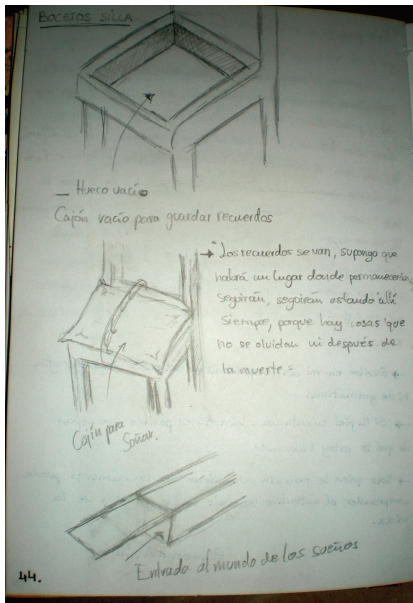 BOCETOS SILLA
_ Hueco vacío
Cajón vacío para guardar recuerdos
→ "Los recuerdos se van, supongo que
habrá un lugar donde permanecerán,
seguirán, seguirán estando allí
siempre, porque hay cosas que
no se olvidan ni después de
la muerte."
Cojín para
soñar.
Entrada al mundo de los sueños
44.